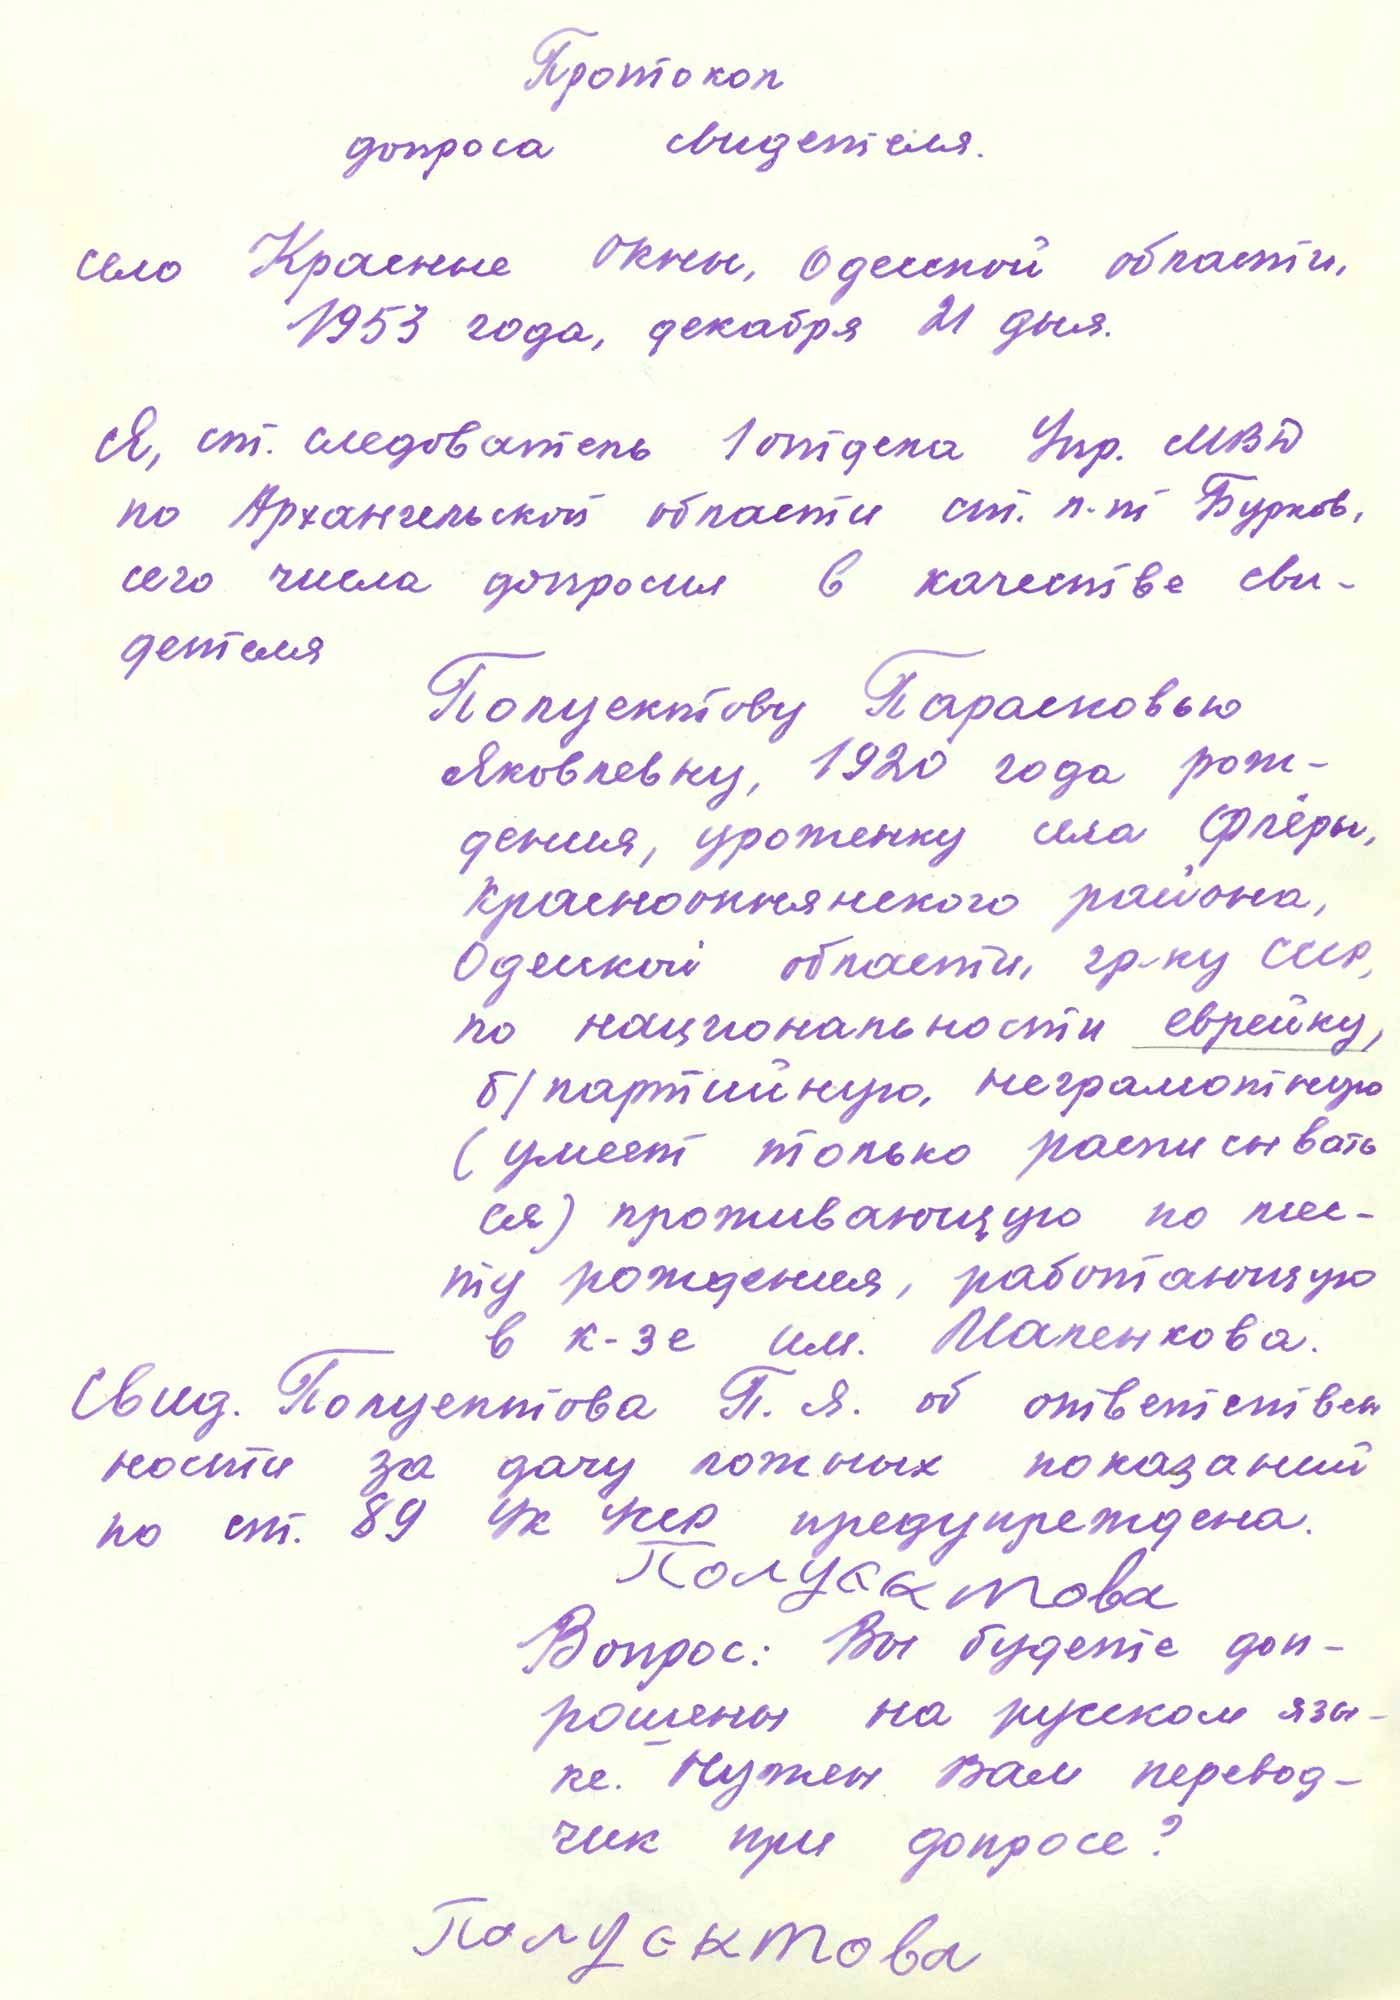 Протокол
допроса свидетеля.
село Красные Окны, Одесской области,
1953 года, декабря 21 дня.
Я, ст. следователь 1 отдела Упр. МВД
по Архангельской области ст. л-т Бурков,
сего числа допросил в качестве сви-
детеля
Полуектову Парасковью
Яковлевну, 1920 года рож-
дения, уроженку села Флёры,
Красноокнянского района,
Одесской области, гр-ку СССР,
по национальности еврейку,
б/партийную, неграмотную
(умеет только расписывать
ся) проживающую по мес-
ту рождения, работающую
в к-зе им. Маленкова.
Свид. Полуектова П. Я. об ответствен
ности за дачу ложных показаний
по ст. 89 УК УССР предупреждена.
Полуектова
Вопрос: Вы будете доп-
рошены на русском язы-
ке. Нужен Вам перевод-
чик при допросе?
Полуектова